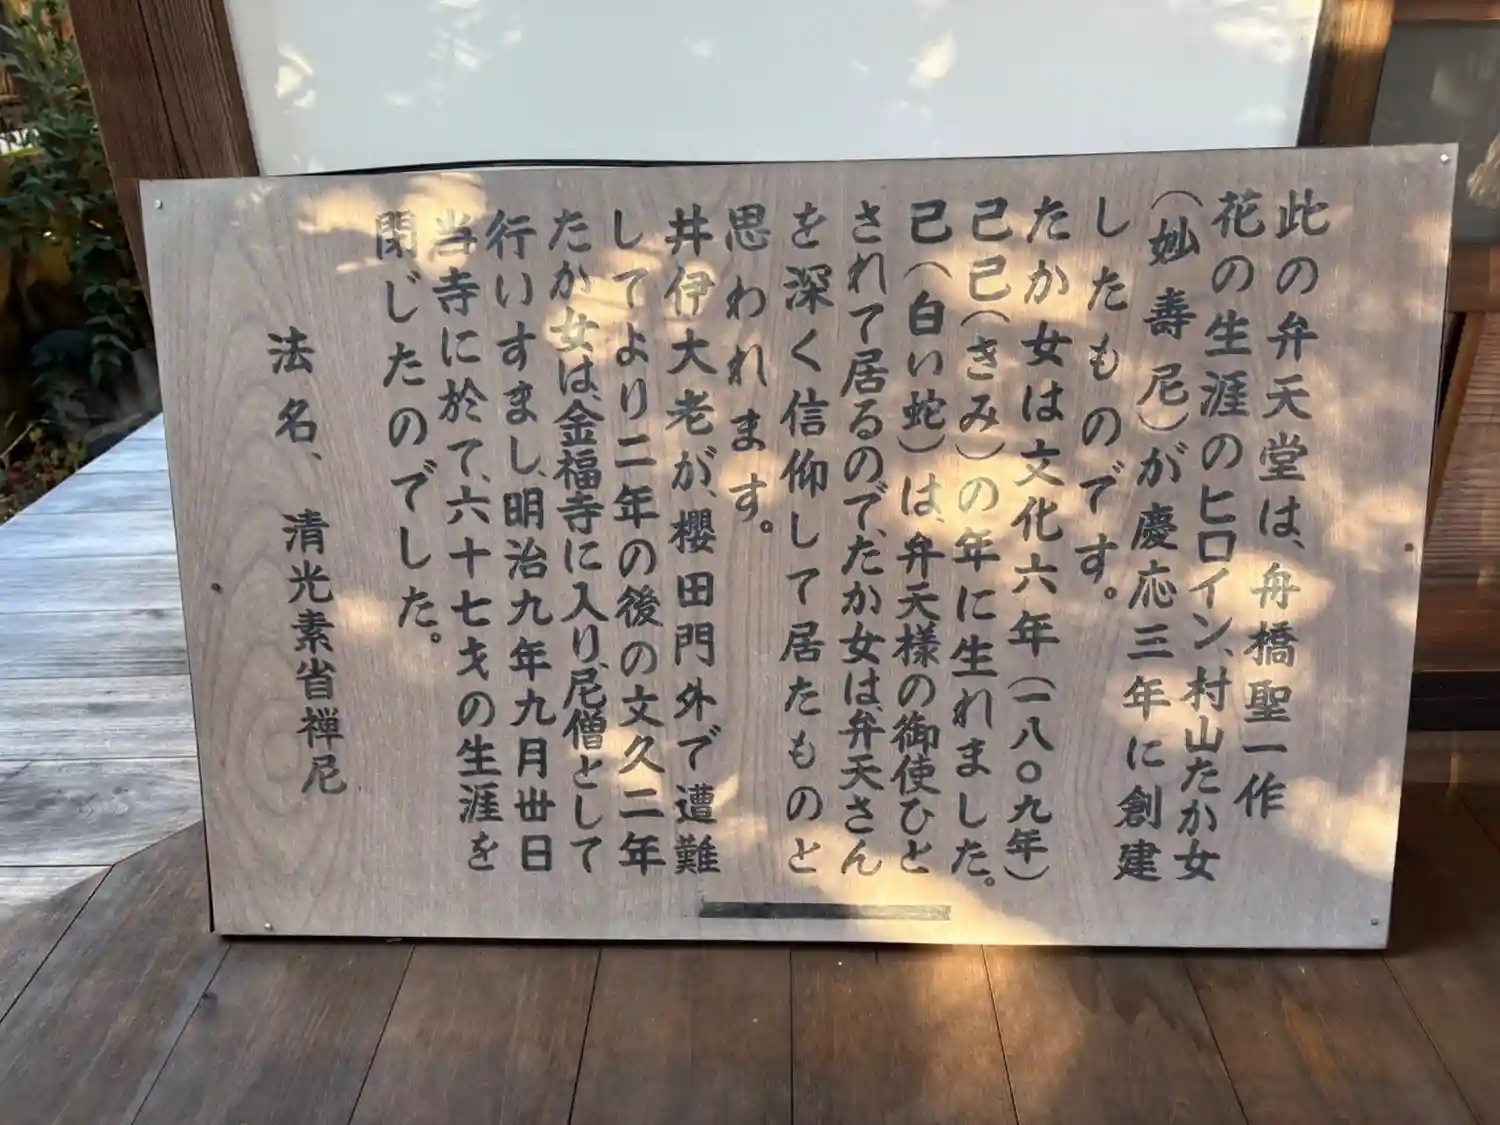 此の弁天堂は、舟橋聖一作
花の生涯のヒロイン、村山たか女
（妙寿尼）が慶応三年に創建
したものです。
たか女は文化六年（一八〇九年）
己巳（きみ）の年に生れました。
己（白い蛇）は、弁天様の御使ひと
されて居るので、たか女は、弁天さん
を深く信仰して居たものと
思われます。
井伊大老が、櫻田門外で遭難
してより二年の後の文久二年
たか女は、金福寺に入り、尼僧として
行いすまし、明治九年九月丗日
当寺に於て、六十七才の生涯を
閉じたのでした。
法名、清光素省禅尼